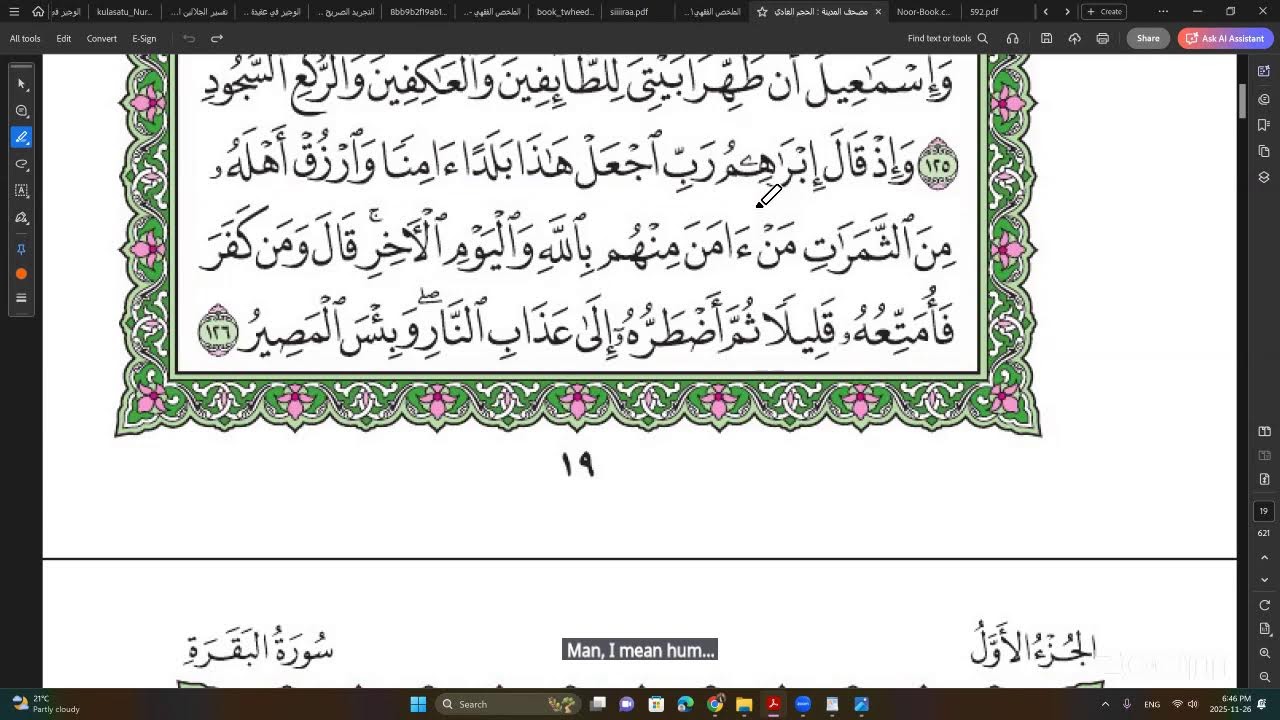 الوجيز في
kulasatu_Nur...
تفسير الجلالين ا...
الوجيز في عقيدة ..
التجريد الصريح ..
8bb9b2f19ab1...
الملخص الفقهي -...
book_tweed...
siiiiraa.pdf
الملخص الفقهي1...
مصحف المدينة : الحجم العادي
Noor-Book.c...
592.pdf
Create
All tools Edit Convert E-Sign
Find text or tools Share Ask AI Assistant
وَإِسۡمَٰعِيلَ أَن طَهِّرَا بَيۡتِيَ لِلطَّآئِفِينَ وَٱلۡعَٰكِفِينَ وَٱلرُّكَّعِ ٱلسُّجُودِ
١٢٥ وَإِذۡ قَالَ إِبۡرَٰهِـۧمُ رَبِّ ٱجۡعَلۡ هَٰذَا بَلَدًا ءَامِنٗا وَٱرۡزُقۡ أَهۡلَهُۥ
مِنَ ٱلثَّمَرَٰتِ مَنۡ ءَامَنَ مِنۡهُم بِٱللَّهِ وَٱلۡيَوۡمِ ٱلۡأٓخِرِۚ قَالَ وَمَن كَفَرَ
فَأُمَتِّعُهُۥ قَلِيلٗا ثُمَّ أَضۡطَرُّهُۥٓ إِلَىٰ عَذَابِ ٱلنَّارِۖ وَبِئۡسَ ٱلۡمَصِيرُ ١٢٦
١٩
19
621
سُورَةُ البَقَرَةِ
الجُزْءُ الأَوَّلُ
Man, I mean hum...
21°C
Partly cloudy
Search
ENG
6:46 PM
2025-11-26